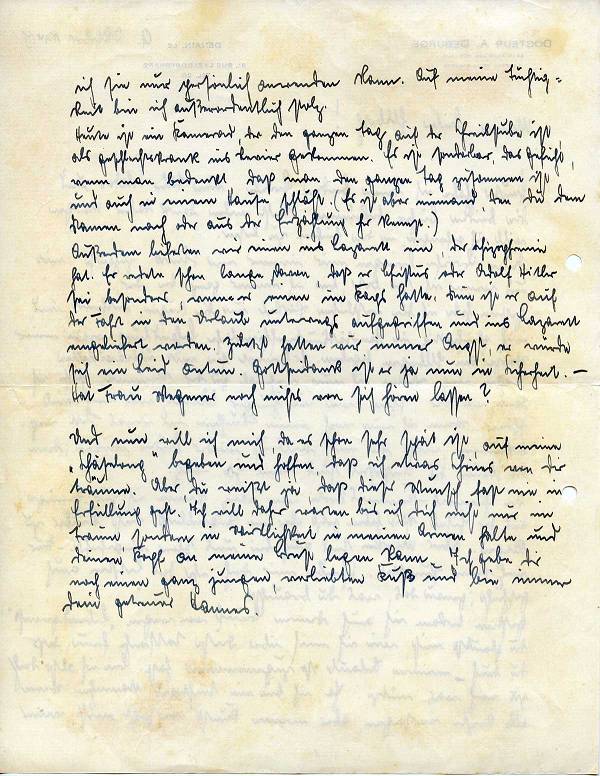 ich sie nur persönlich anwenden kann. Auf meine Tüchtig=
keit bin ich außerordentlich stolz.
Heute ist ein Kamerad der den ganzen Tag auf der Schreibstube ist,
als geschlechtskrank ins Revier gekommen. Es ist sonderbar, das Gefühl,
wenn man bedenkt daß man den ganzen Tag zusammen ist
und auch in einem Hause schläft. (Es ist aber niemand den du dem
Namen nach oder aus der Erzählung her kennst.)
Außerdem lieferten wir einen ins Lazarett ein, der Schizophrenie
hat. Er redete schon lange davon, daß er Christus oder Adolf Hitler
sei, besonders, wenn er einen im hatte. Nun ist er auf
der Fahrt in den Urlaub unterwegs aufgegriffen und ins Lazarett
eingeliefert worden. Zuletzt hatten wir immer Angst, er würde
sich ein Leid antun. Gottseidank ist er ja nun in Sicherheit. —
Hat Frau Wegener noch nichts von sich hören lassen?
Und nun will ich mich, da es schon sehr spät ist auf meine
begeben und hoffen, daß ich etwas Schönes von dir
träume. Aber du weißt ja, daß dieser Wunsch fast nie in
Erfüllung geht. Ich will daher warten, bis ich dich nicht nur im
Traum sondern in Wirklichkeit in meinen Armen halte und
deinen Kopf an meine Brust legen kann. Ich gebe dir
noch einen ganz jungen, verliebten Kuß und bin immer
dein getreuer Hannes.